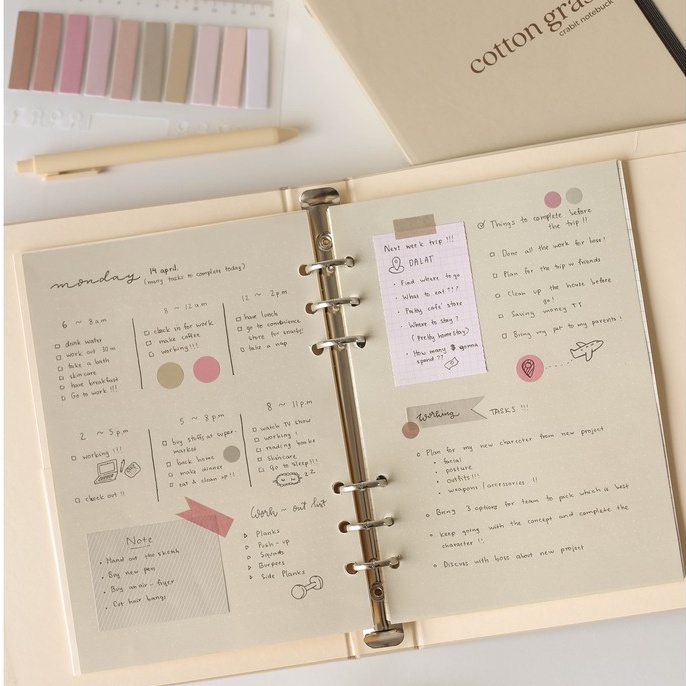 cotton gra
crabit notebuck
monday
14 april.
(many tasks to complete today)
6 ~ 8am
drink water
work out 30m
take a bath
skin care
have breakfast
Go to work !!!
8 ~ 12am
check in for work
make coffee
working !!!
12 ~ 2pm
have lunch
go to convenience
store for snacks!
take a nap
2 ~ 5pm
working !!!
check out !!
5 ~ 8pm
buy stuffs at super-
market
back home
make dinner
eat & clean up !!
8 ~ 11pm
watch TV show
working !
reading books
Skincare
Go to sleep !!!
zz
Note
Hand out the sketch
Buy new pen
Buy air-fryer
Cut hair bangs
Work-out list
Planks
Push-up
Squats
Burpees
Side Planks
Next week trip !!!
DALAT
Find where to go
What to eat ??!
Pretty cafe' store
Where to stay?
(Pretty homestay)
How many $ gonna
spend ??
Things to complete before
the trip !!
Done all the work for boss!
Plan for the trip w friends
Clean up the house before
go!
Saving money TT
Bring my pet to my parents!
Working
TASKS !!!
Plan for my new character from new project
facial
posture
outfits !!!
weapons / accessories !!
Bring 3 options for team to pick which is best
keep going with the concept and complete the
character !!
Discuss with boss about new project